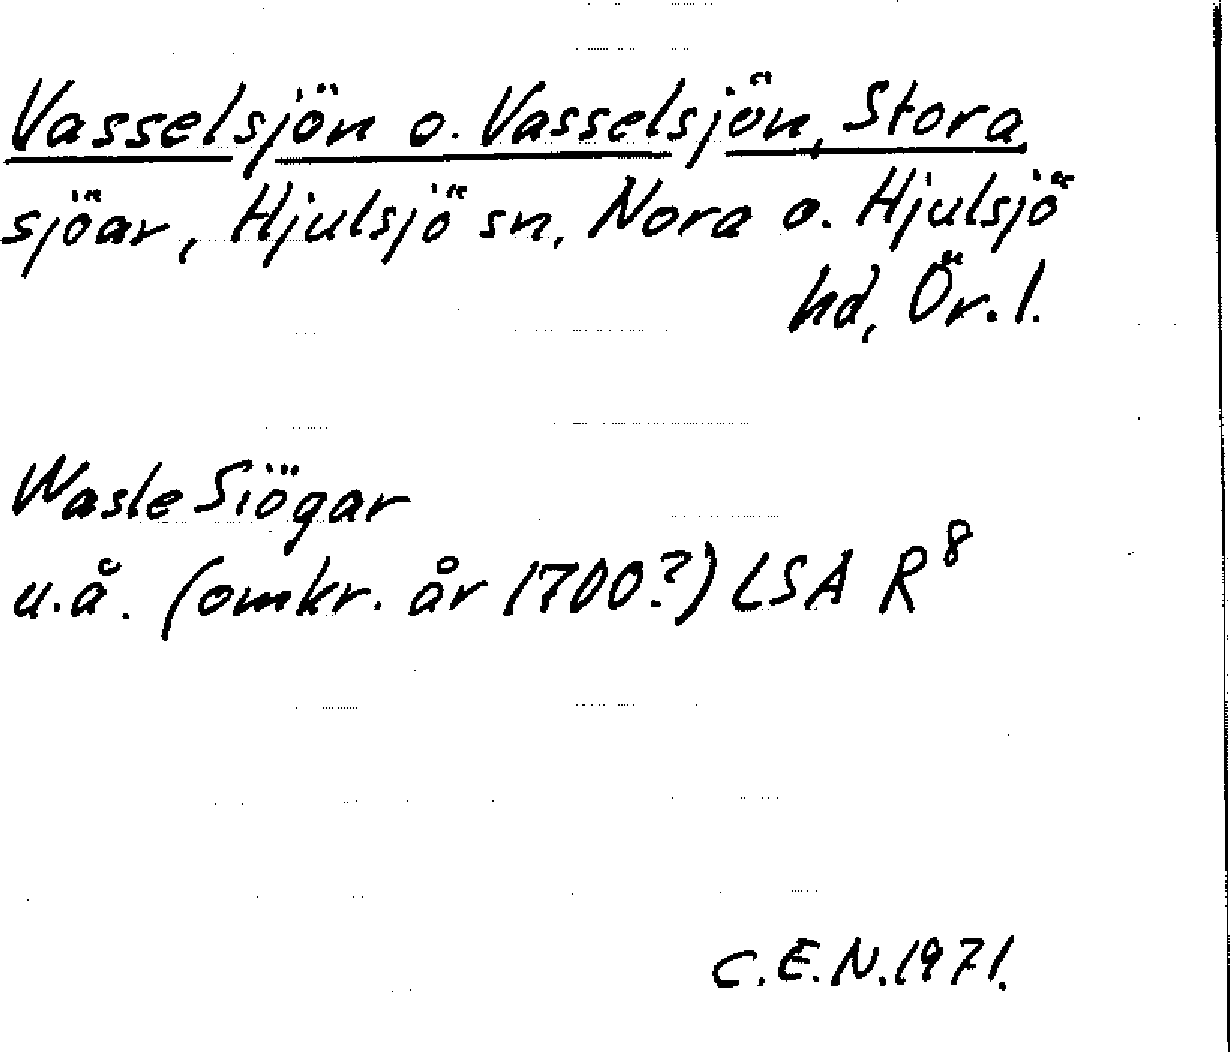 Vasselsjön o. Vasselsjön, Stora,
sjöar, Hjulsjö sn, Nora o. Hjulsjö
hd, Ör. l.
Wasle Siögar
u.å. (omkr. år 1700?) LSA R⁸
C.E.N. 1971.